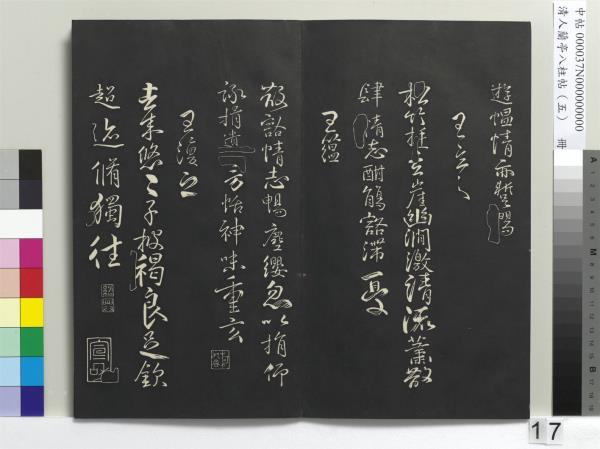 中帖 000037N000000000
清人蘭亭八柱帖(五) 冊
遊愠情亦蹔暢
王玄之
松竹挺岩崖幽澗激清流蕭散
肆情志酣觴豁滯憂
王蘊
散豁情志暢塵纓忽以捐仰
詠挹遺芳怡神味重玄
王渙之
去來悠悠子披褐良足欽
超迹脩獨往
17